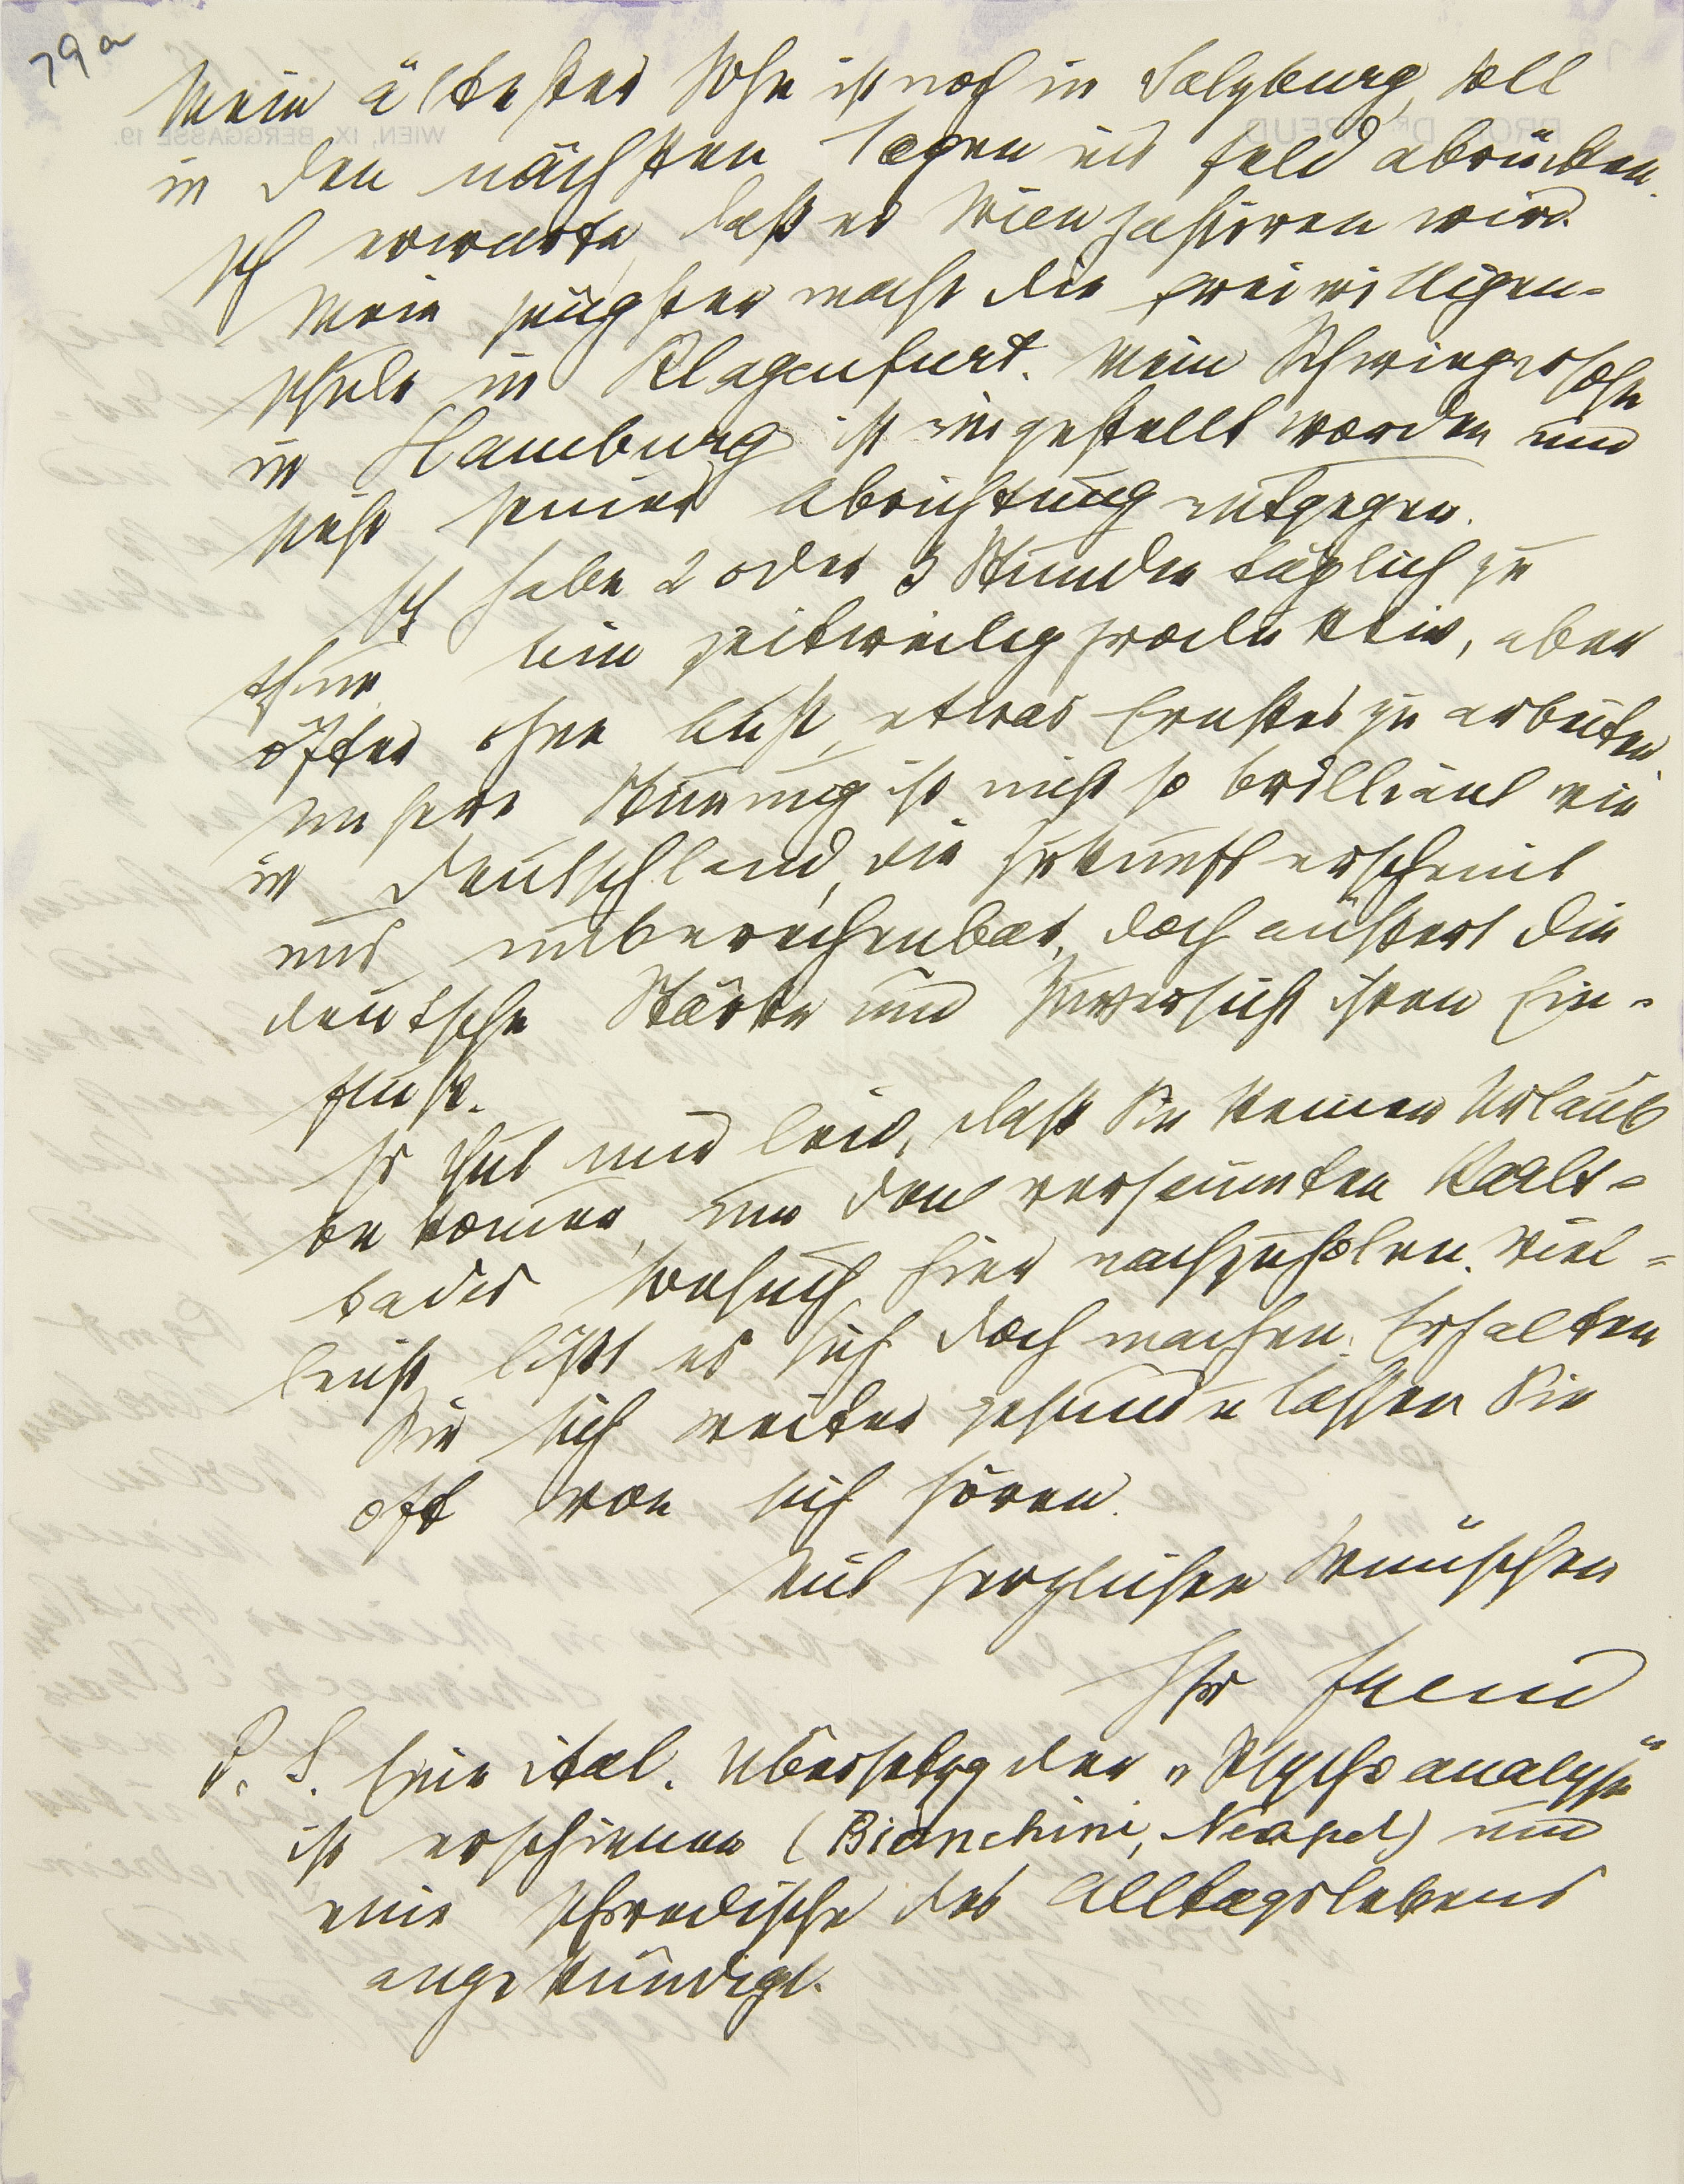 79a
Mein ältester Sohn ist noch in Salzburg, soll
in den nächsten Tagen ins Feld abrücken.
Ich erwarte, daß er Wien passiren wird.
Mein jüngster macht die Freiwilligen-
schule in Klagenfurt. Mein Schwiegersohn
in Hamburg ist eingestellt worden und
sieht seiner Abrichtung entgegen.
Ich habe 2 oder 3 Stunden täglich zu
thun, bin zeitweilig produktiv, aber
öfter ohne Lust, etwas Ernstes zu arbeiten.
Unsere Stimmung ist nicht so brilliant wie
in Deutschland, die Zukunft erscheint
uns unberechenbar, doch äußert die
deutsche Stärke und Zuversicht ihren Ein-
fluß.
Es thut mir leid, daß Sie keinen Urlaub
bekommen, um den versäumten Karls-
bader Besuch hier nachzuholen. Viel-
leicht läßt es sich doch machen. Erhalten
Sie sich weiter gesund u lassen Sie
oft von sich hören.
Mit herzlichen Wünschen
Ihr Freud
P. S. Eine ital. Übersetzg der „Psychoanalyse“
ist erschienen (Bianchini, Neapel) und
eine schwedische des Alltagslebens
angekündigt.
PROF. DR. FREUD
WIEN, IX. BERGGASSE 19.